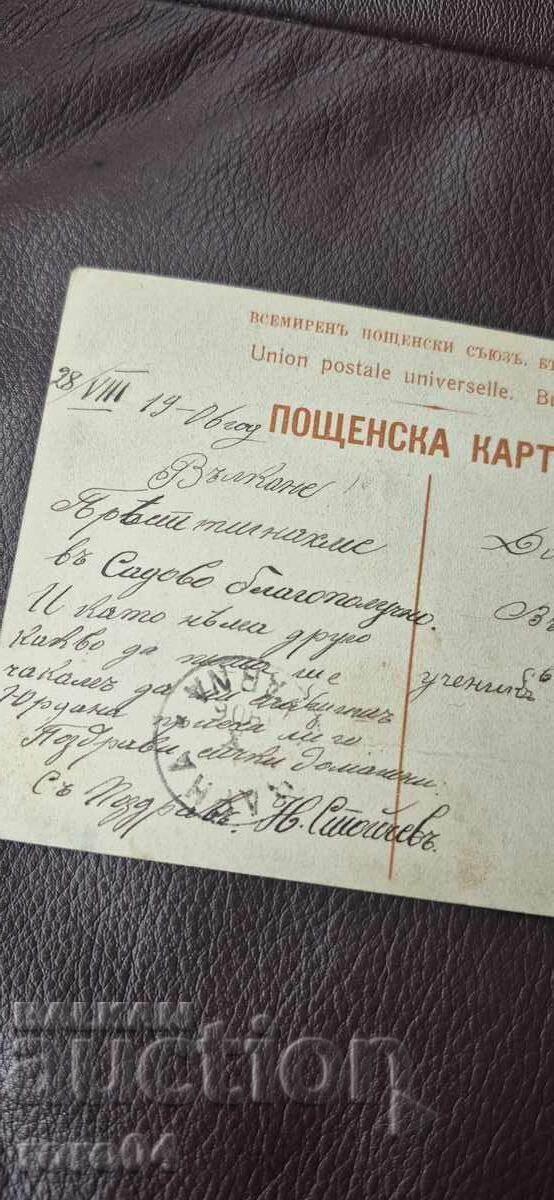 ВСЕМИРЕНЪ ПОЩЕНСКИ СЪЮЗЪ. БЪ
Union postale universelle. Bu
ПОЩЕНСКА КАРТ
28/VIII 19-06 год
Вълкане
Прѣст тигнахме
въ Садово благополучно.
И като нѣма друго
какво да пиша ще
чакамъ да ми
Юрдана прие ли го.
Поздрави сички домашни.
Съ Поздравъ: Н. Стойчевъ.
Въ
ученикъ
ВАРНА
BALKAN
auction
toto04